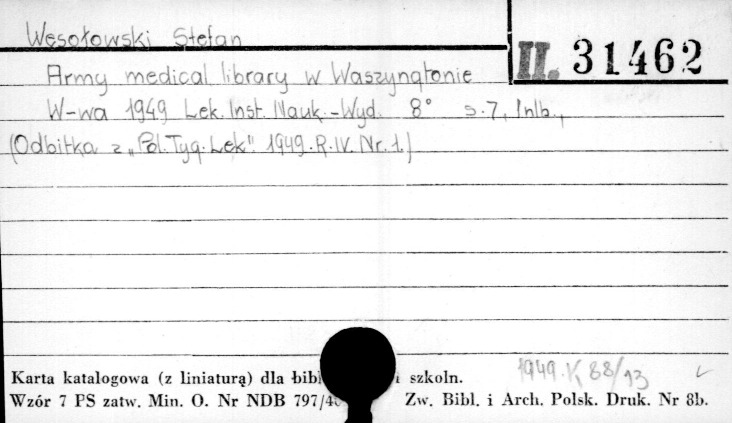 Wesołowski Stefan
II. 31462
Army medical library w Waszyngtonie
W-wa 1949 Lek. Inst. Nauk.-Wyd. 8° s. 7, 1nlb.,
(Odbitka z „Pol. Tyg. Lek". 1949. R. IV. Nr. 1.)
1949. K 88/93
Karta katalogowa (z liniaturą) dla i szkoln.
Wzór 7 PS zatw. Min. O. Nr NDB Zw. Bibl. i Arch. Polsk. Druk. Nr 8b.